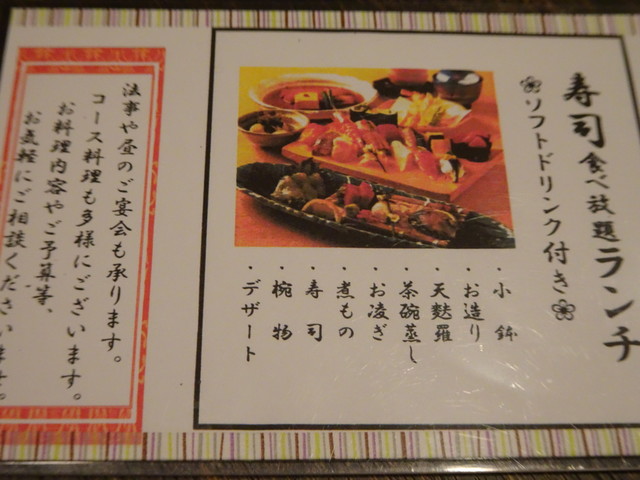 寿司食べ放題ランチ
❀ソフトドリンク付き❀
・小鉢
・お造り
・天麩羅
・茶碗蒸し
・お凌ぎ
・煮もの
・寿司
・椀物
・デザート
法事や昼のご宴会も承ります。
コース料理も多様にございます。
お料理内容やご予算等、
お気軽にご相談くださいませ。